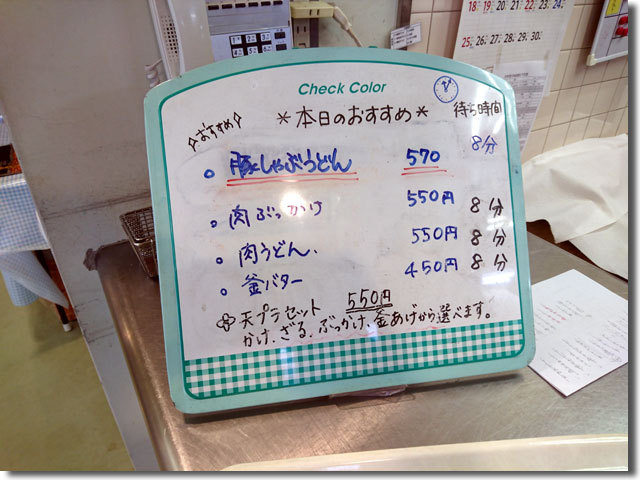 18 19 20 21 22 23 24
25 26 27 28 29 30
Check Color
おすすめ
*本日のおすすめ* 待ち時間
豚しゃぶうどん 570 8分
肉ぶっかけ 550円 8分
肉うどん、 550円 8分
釜バター 450円 8分
天プラセット 550円
かけ、ざる、ぶっかけ、釜あげから選べます。